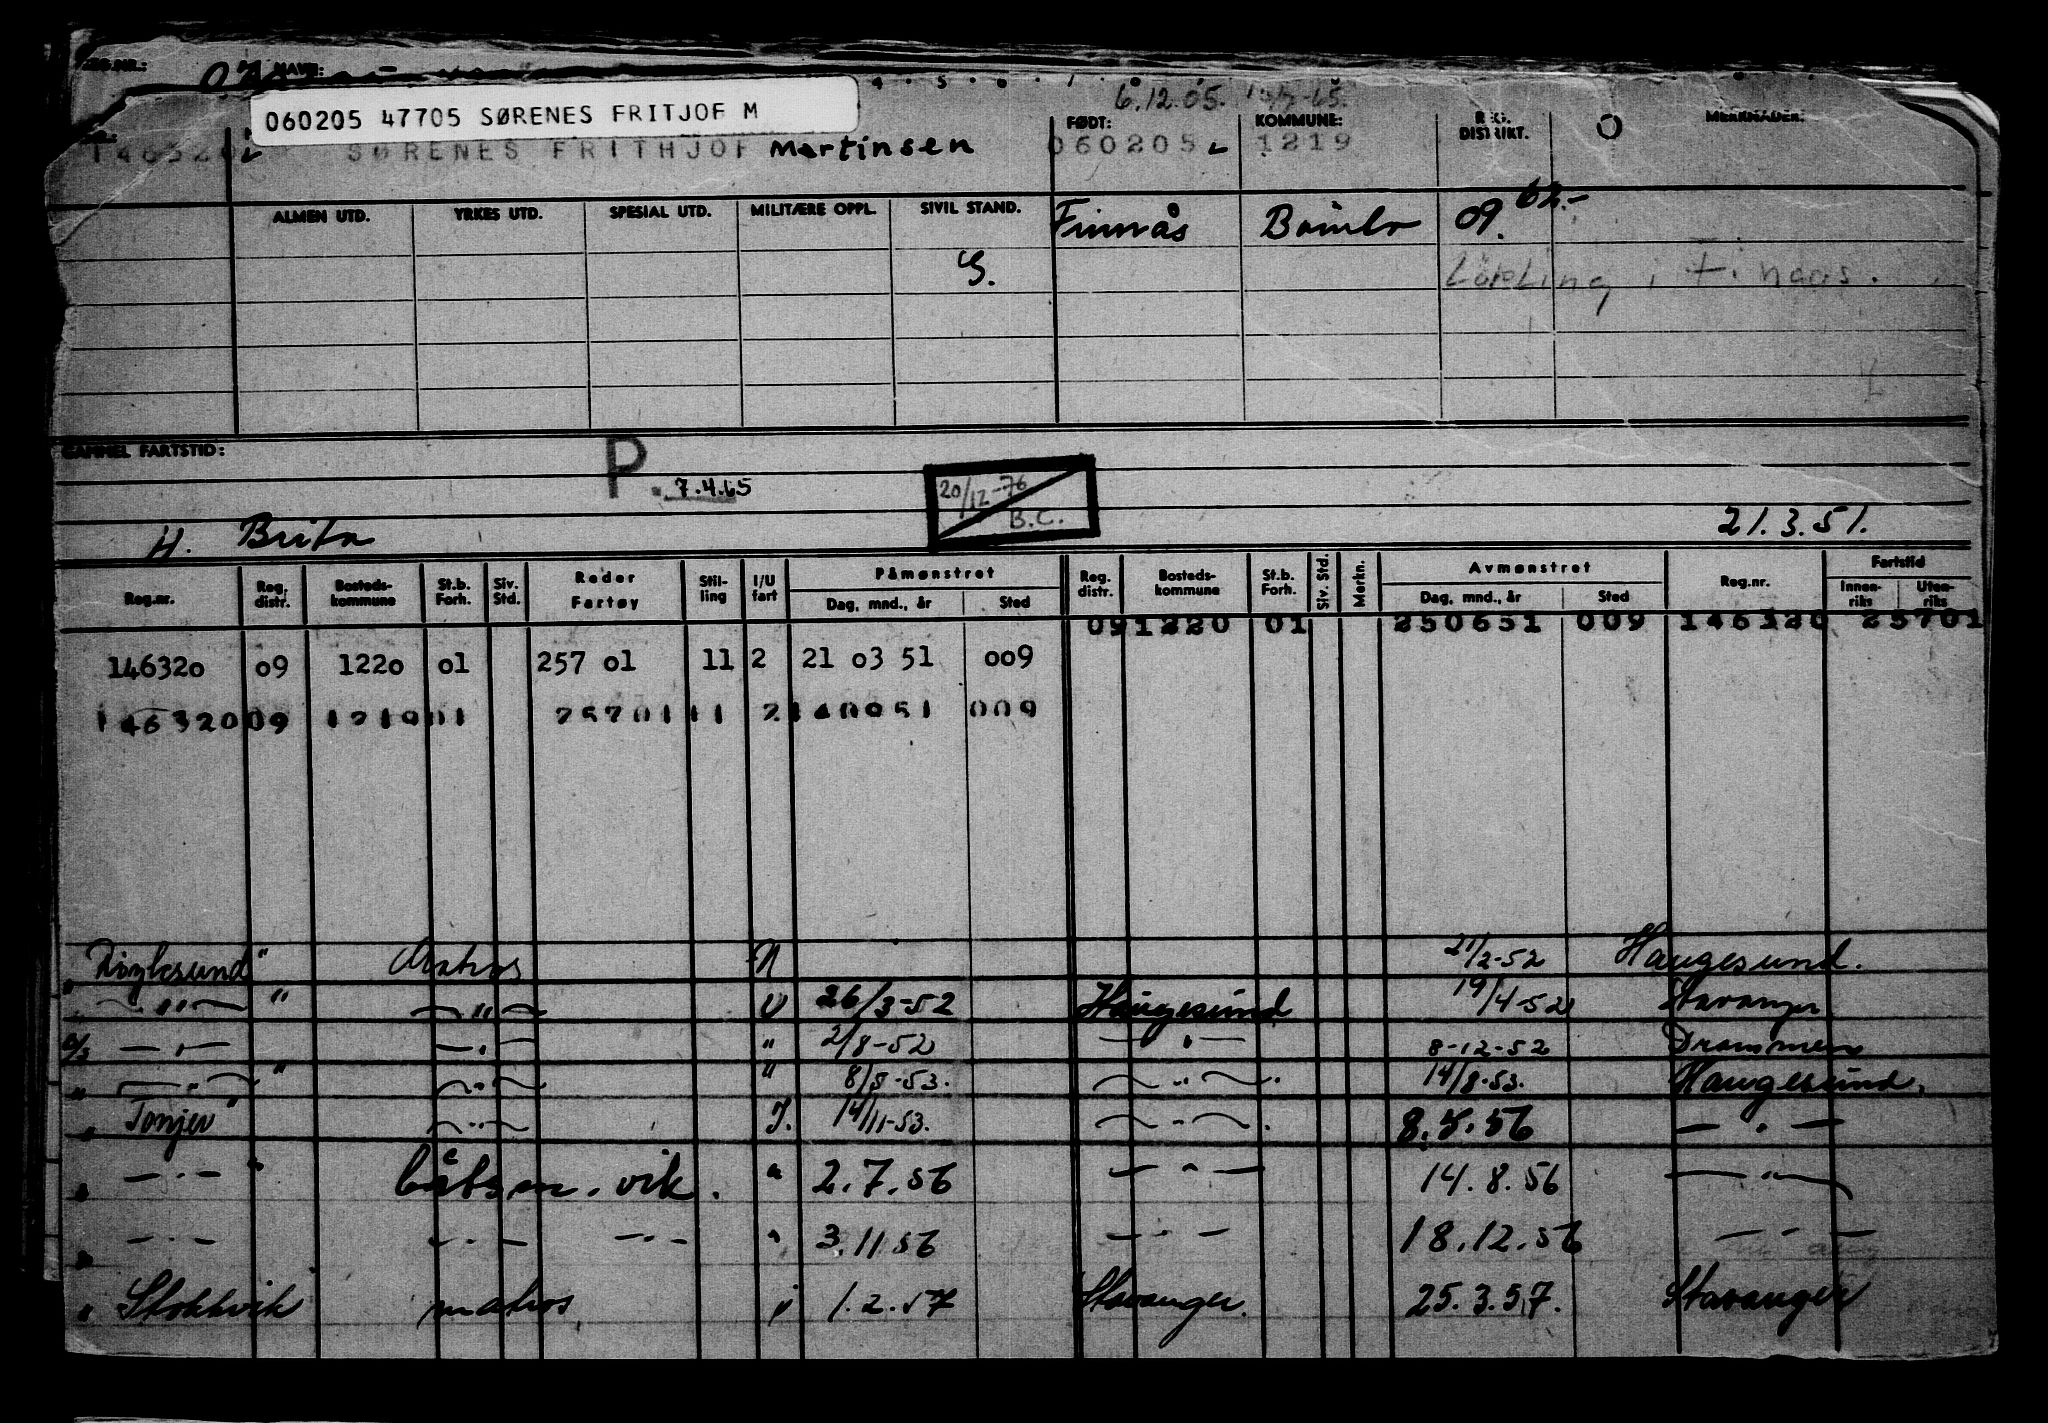 REG.NR.: NAVN:
6.12.05.
060205 47705 SØRENES FRITJOF M
FØDT: KOMMUNE: REG. DISTRIKT. O MERKNADER:
146320 SØRENES FRITHJOF Martinsen 060205 1219
ALMEN UTD. YRKES UTD. SPESIAL UTD. MILITÆRE OPPL. SIVIL STAND. Finnås Bømlo 09. 62.-
G. i Finaas.
GAMMEL FARTSTID: P. 7.4.65
20/12-76 B.C.
H. Brita 21.3.51.
Reg.nr. Reg. distr. Bosteds-kommune St.b. Forh. Siv. Std. Reder Fartøy Stil-ling I/U fart Påmønstret Dag, mnd., år Sted Reg. distr. Bosteds-kommune St.b. Forh. Siv. Std. Merkn. Avmønstret Dag, mnd., år Sted Reg.nr. Fartstid Innen-riks Uten-riks
091220 01 250651 009 146320 25701
146320 09 1220 01 257 01 11 2 21 03 51 009
146320 09 1219 01 25701 11 2 140951 009
" Røyksund " Matros 21/2-52 Haugesund.
" — " — " — " — U 26/3-52 Haugesund 19/4-52 Stavanger
— " — — " — " 2/8-52 — " — 8-12-52 Drammen
" — " — " — " — " 8/5-53. — " — . 14/8-53. Haugesund.
" Tonjer " — " — I. 14/11-53. — " — . 8.5.56 — " —
" — " — " båtsm. vik. " 2.7.56 — " — 14.8.56 — " —
" — " — — " — — " — " 3.11.56 — " — 18.12.56 — " —
" Stokkvik matros " 1.2.57 Stavanger. 25.3.57. Stavanger